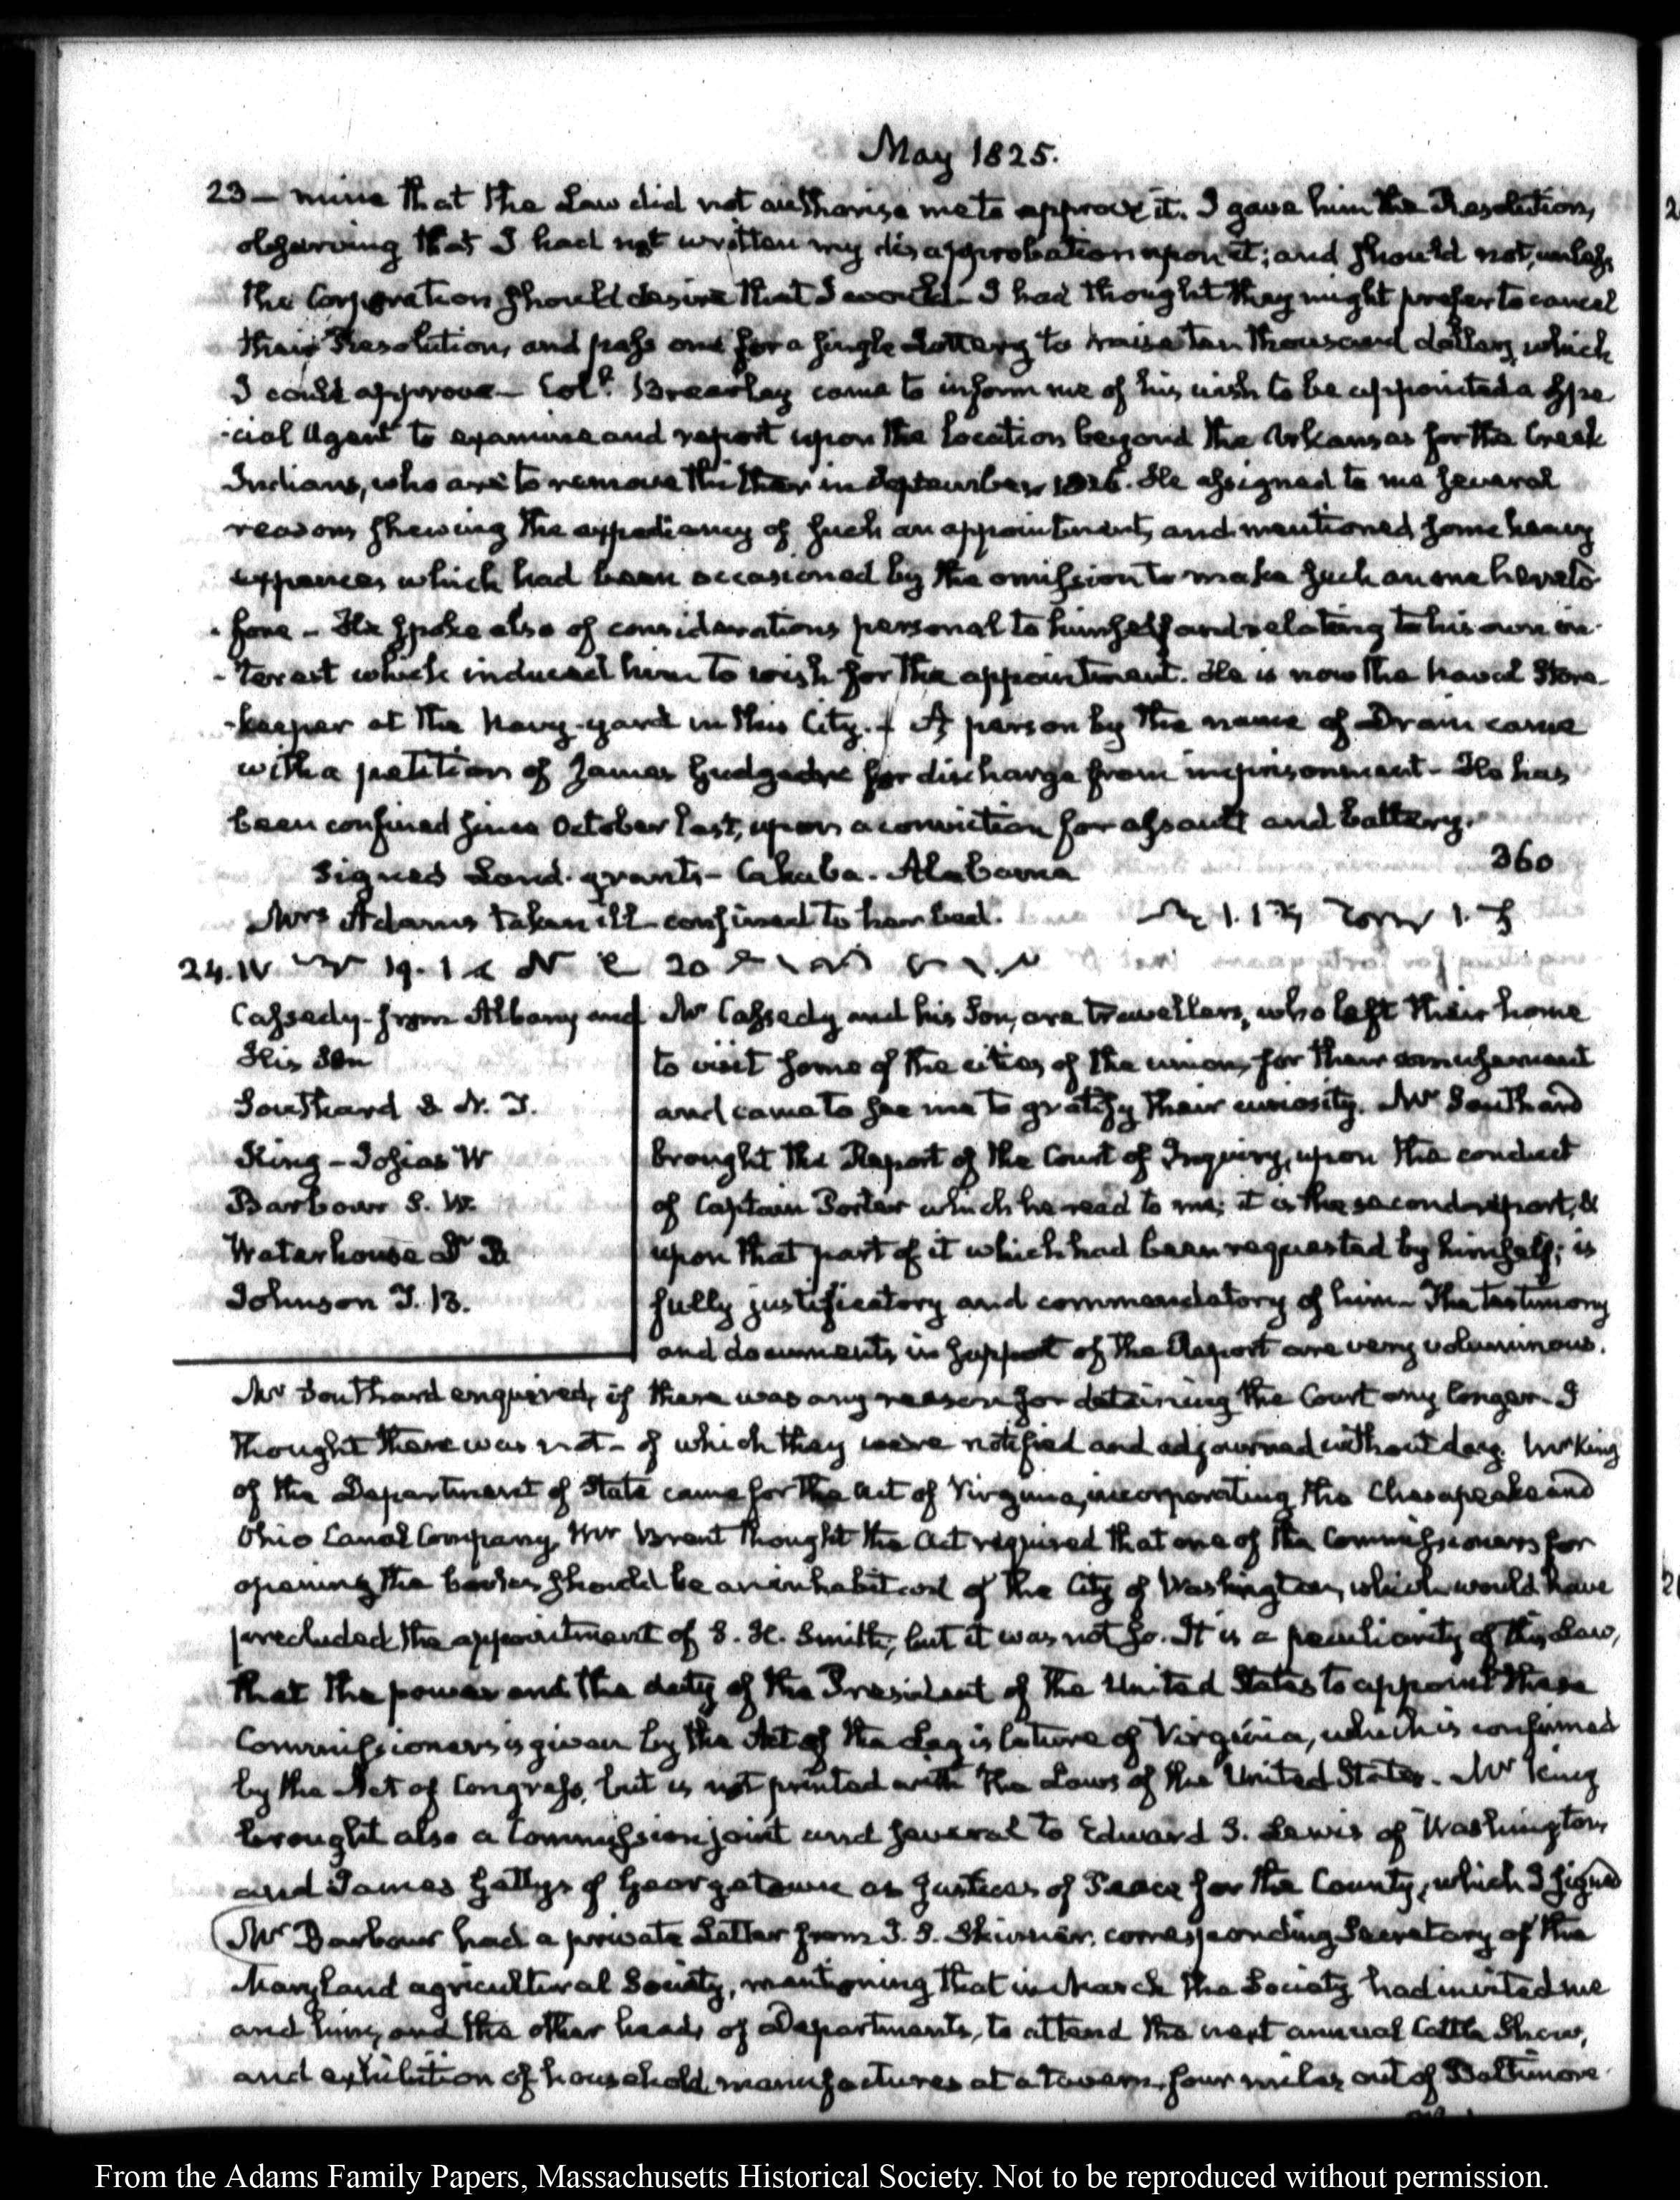 May 1825.
23 — mine that the Law did not authorise me to approve it. I gave him the Resolution,
observing that I had not written my disapprobation upon it; and should not, unless
the Corporation should desire that I would. I had thought they might prefer to cancel
their Resolution, and pass one for a single Lottery to raise ten thousand dollars, which
I could approve — Coll. Brearley came to inform me of his wish to be appointed a spe
-cial Agent to examine and report upon the location beyond the Arkansas for the Creek
Indians, who are to remove thither in September 1826. He assigned to me several
reasons shewing the expediency of such an appointment, and mentioned some heavy
expences which had been occasioned by the omission to make such an one hereto
-fore — He spoke also of considerations personal to himself and relating to his own in-
-terest which induced him to wish for the appointment. He is now the Naval Store-
-keeper at the Navy-yard in this City. — A person by the name of Drain came
with a petition of James for discharge from imprisonment — He has
been confined since October last, upon a conviction for assault and battery.
Signed Land-grants — Cahaba. Alabama 360
Mrs Adams taken ill confined to her bed.
24. IV
Cassedy — from Albany and
His Son
Southard S. N. J.
King — Josias W
Barbour S. W.
Waterhouse Dr B
Johnson J. B.
Mr Cassedy and his Son, are travellers, who left their home
to visit some of the cities of the union, for their amusement
and came to see me to gratify their curiosity. Mr Southard
brought the Report of the Court of Inquiry, upon the conduct
of Captain Porter which he read to me; it is the second report, &
upon that part of it which had been requested by himself; is
fully justificatory and commendatory of him — The testimony
and documents in support of the Report are very voluminous.
Mr Southard enquired, if there was any reason for detaining the Court any longer — I
thought there was not — of which they were notified and adjourned without day. Mr King
of the Department of State came for the Act of Virginia, incorporating the Chesapeake and
Ohio Canal Company. Mr Brent thought the Act required that one of the Commissioners for
opening the books should be an inhabitant of the City of Washington, which would have
precluded the appointment of S. H. Smith; but it was not so. It is a peculiarity of this Law,
that the power and the duty of the President of the United States to appoint these
Commissioners is given by the Act of the Legislature of Virginia, which is confirmed
by the Act of Congress, but is not printed with the Laws of the United States. Mr King
brought also a Commission joint and several to Edward S. Lewis of Washington,
and James Gettys of Georgetown as Justices of Peace for the County, which I signed
Mr Barbour had a private Letter from J. S. Skinner, corresponding Secretary of the
Maryland agricultural Society, mentioning that in March the Society had invited me
and him, and the other heads of Departments, to attend the next annual Cattle Show,
and exhibition of household manufactures at a tavern, four miles out of Baltimore.
From the Adams Family Papers, Massachusetts Historical Society. Not to be reproduced without permission.